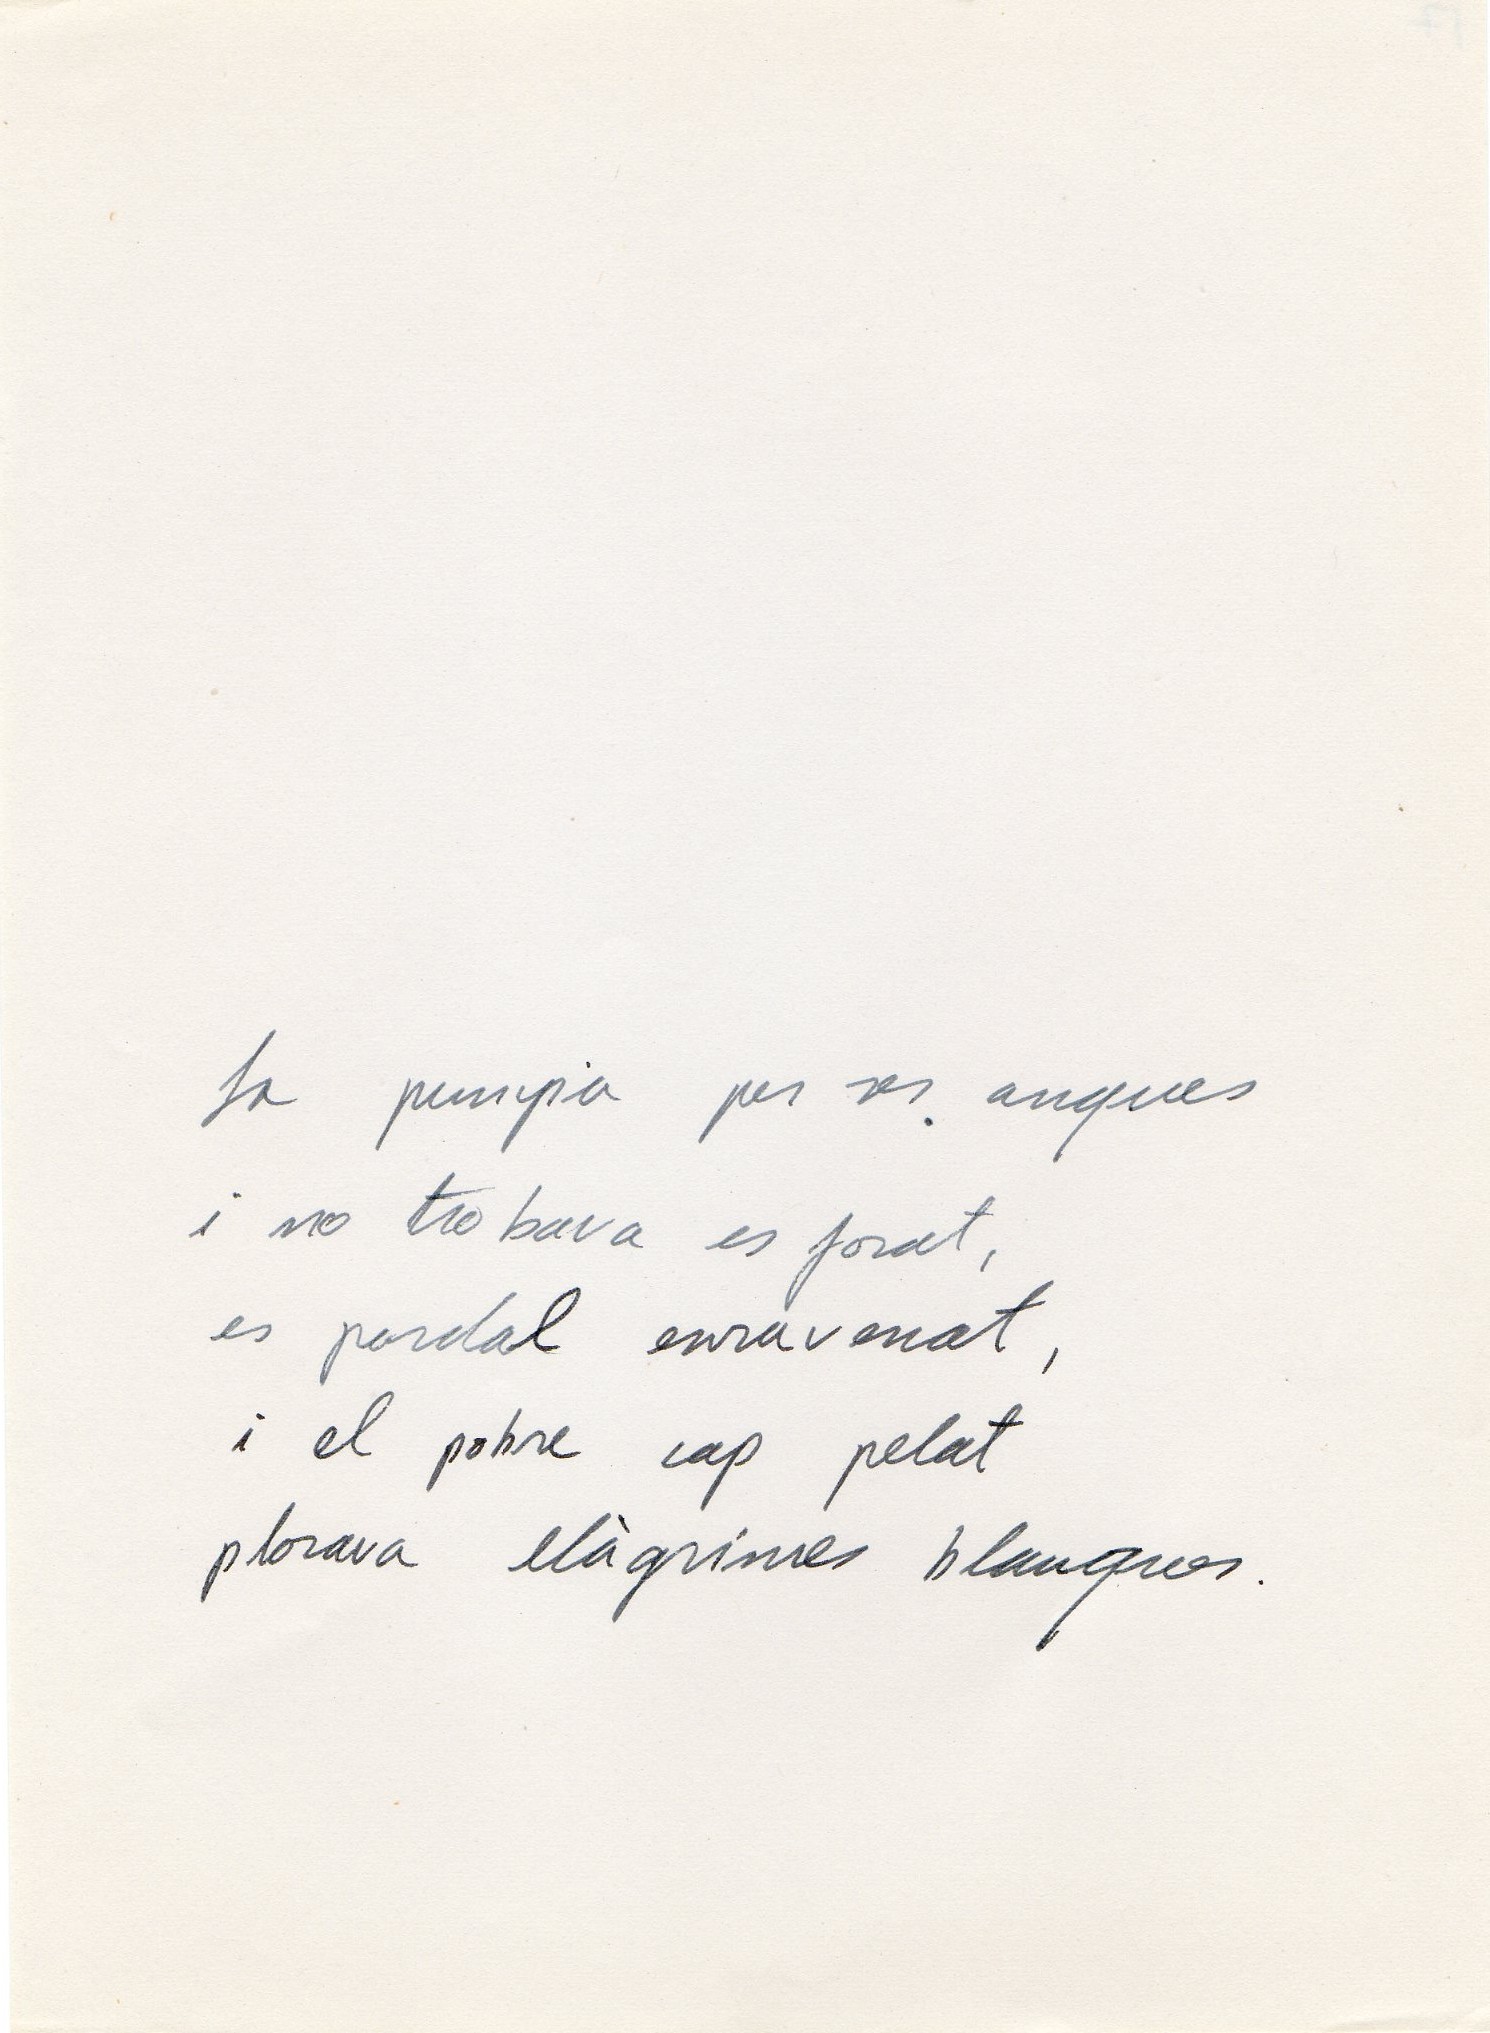 La pumpia per ses anques
i no trobava es forat,
es pardal enravenat,
i el pobre cap pelat
plorava elàgrimes blanques.